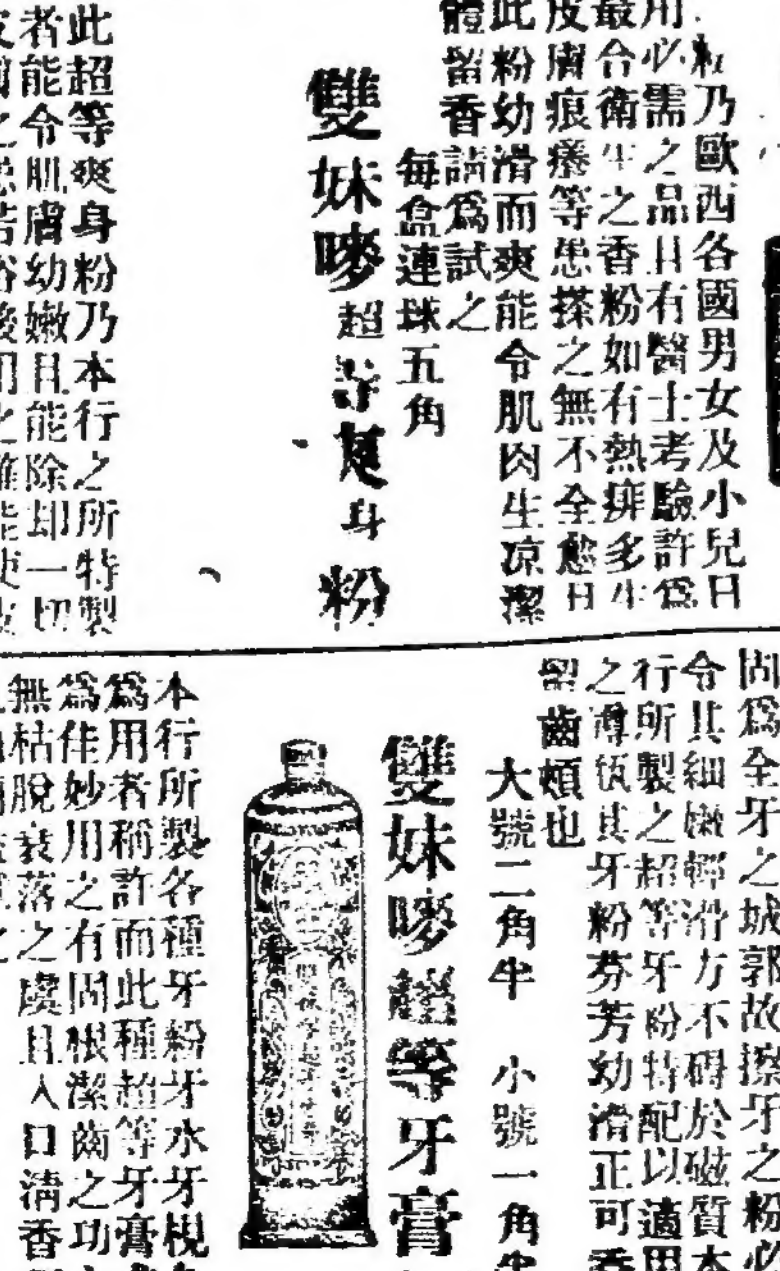 粉乃歐西各國男女及小兒日
用必需之品且有醫士考驗許爲
最合衛生之香粉如有熱痱多生
皮膚痕癢等患搽之無不全愈且
此粉幼滑而爽能令肌肉生凉潔
體留香請爲試之
每盒連球五角
雙妹嘜超等爽身粉
此超等爽身粉乃本行之所特製
者能令肌膚幼嫩且能除却一切
固爲全牙之城郭故擦牙之粉必
令其細嫩輕滑方不碍於磁質本
行所製之超等牙粉特配以適用
之 其牙粉芬芳幼滑正可
留齒頰也
大號二角半 小號一角半
雙妹嘜超等牙膏
本行所製各種牙粉牙水牙梘
爲用者稱許而此種超等牙膏
爲佳妙用之有固根潔齒之功
無枯脫衰落之虞且入口清香